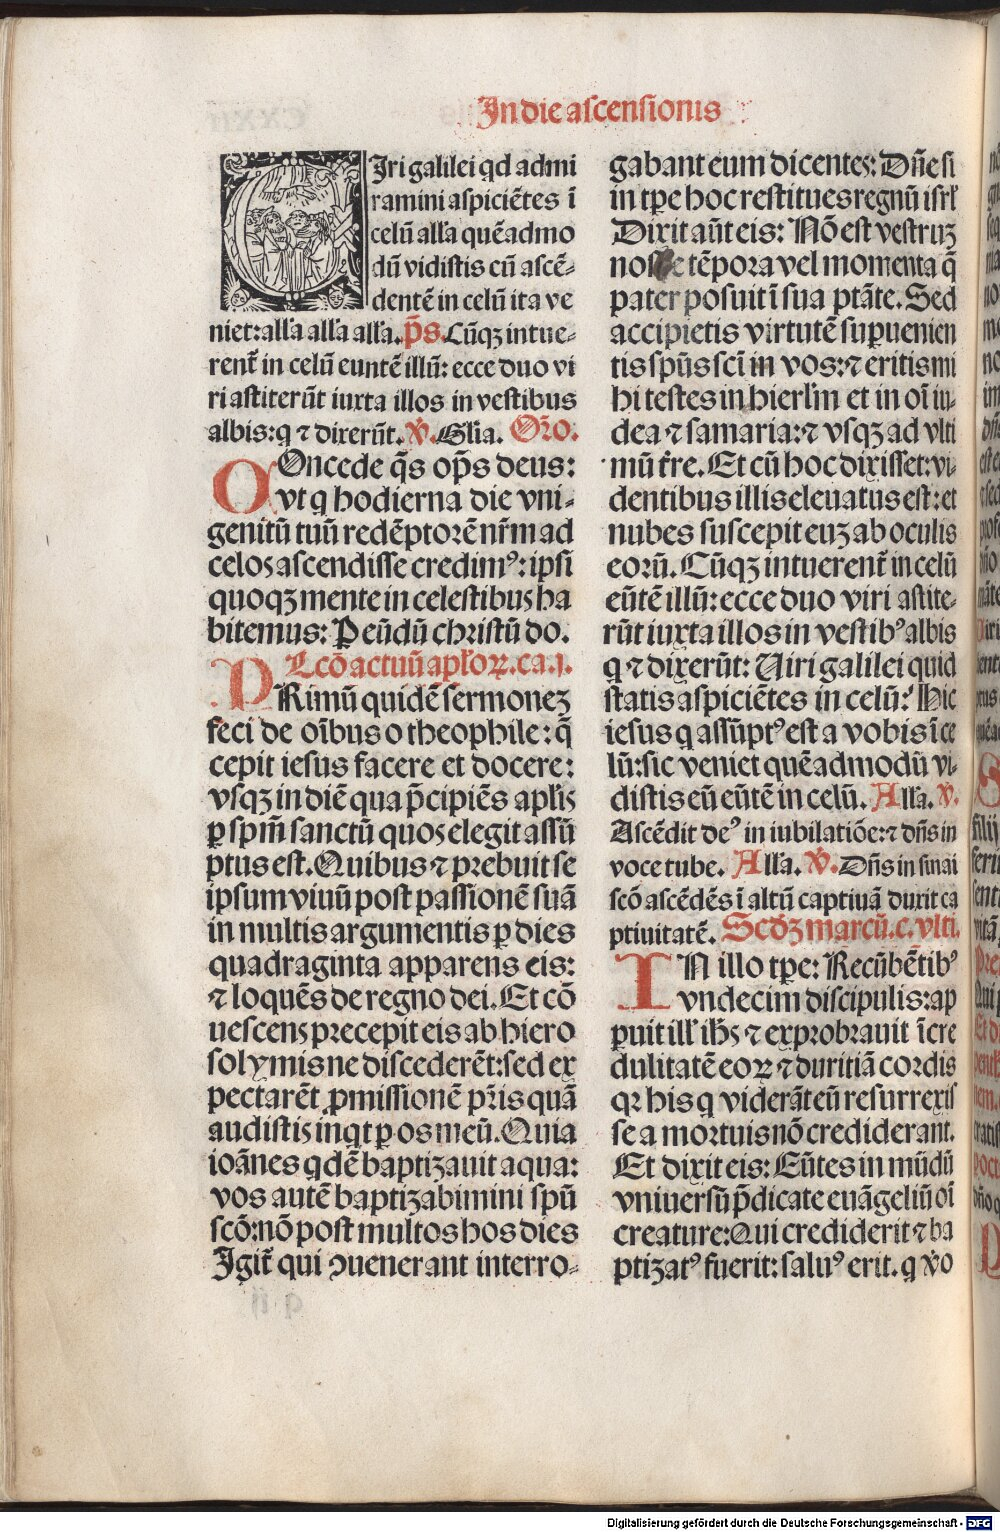 In die ascensionis
VIri galilei qd admi
ramini aspiciẽtes ĩ
celũ alla quẽadmo
dũ vidistis cũ ascẽ-
dentẽ in celũ ita ve
niet: alla alla alla. p̃s. Cũqꝫ intue-
rent̃ in celũ euntẽ illũ: ecce duo vi
ri astiterũt iuxta illos in vestibus
albis: q ⁊ dixerũt. V̓. Glia. Oro.
COncede q̃s op̃s deus:
vt q hodierna die vni-
genitũ tuũ redẽptorẽ nr̃m ad
celos ascendisse credimꝰ: ipsi
quoqꝫ mente in celestibus ha
bitemus: P eũdũ christũ do.
Lcõ actuũ aploꝝ. ca. j.
PRimũ quidẽ sermonez
feci de oĩbus o theophile: q̃
cepit iesus facere et docere:
vsqꝫ in diẽ qua p̃cipiẽs aplis
ꝑ spm̃ sanctũ quos elegit assũ
ptus est. Quibus ⁊ prebuit se
ipsum viuũ post passionẽ suã
in multis argumentis ꝑ dies
quadraginta apparens eis:
⁊ loquẽs de regno dei. Et cõ
uescens precepit eis ab hiero
solymis ne discederẽt: sed ex
pectarẽt ꝓmissionẽ pr̃is quã
audistis inqt ꝑ os meũ. Quia
ioãnes qdẽ baptizauit aqua:
vos autẽ baptizabimini spũ
scõ: nõ post multos hos dies
Igit̃ qui ꝯuenerant interro-
gabant eum dicentes: Dñe si
in tp̃e hoc restitues regnũ isrl
Dixit aũt eis: Nõ est vestruz
nosse tẽpora vel momenta q̃
pater posuit ĩ sua ptãte. Sed
accipietis virtutẽ superuenien
tis spũs scĩ in vos: ⁊ eritis mi
hi testes in hierlm et in oĩ iu-
dea ⁊ samaria: ⁊ vsqꝫ ad vlti
mũ tr̃e. Et cũ hoc dixisset: vi-
dentibus illis eleuatus est: et
nubes suscepit euz ab oculis
eorũ. Cũqꝫ intuerent̃ in celũ
eũtẽ illũ: ecce duo viri astite-
rũt iuxta illos in vestibꝰ albis
q ⁊ dixerũt: Uiri galilei quid
statis aspiciẽtes in celũ? Hic
iesus q assũptꝰ est a vobis ĩ ce
lũ: sic veniet quẽadmodũ vi-
distis eũ eũtẽ in celũ. Alla. V̓.
Ascẽdit deꝰ in iubilatiõe: ⁊ dñs in
voce tube. Alla. V̓. Dñs in sinai
scõ ascẽdẽs ĩ altũ captiuã duxit ca
ptiuitatẽ. Scdꝫ marcũ. c. vlti.
IN illo tp̃e: Recũbẽtibꝰ
vndecim discipulis: ap
puit ill ihs̃ ⁊ exprobrauit ĩcre
dulitatẽ eoꝝ ⁊ duritiã cordis
qꝛ his q viderãt eũ resurrexis
se a mortuis nõ crediderant.
Et dixit eis: Eũtes in mũdũ
vniuersũ p̃dicate euãgeliũ oĩ
creature: Qui crediderit ⁊ ba
ptizatꝰ fuerit: saluꝰ erit. q v̓o
Digitalisierung gefördert durch die Deutsche Forschungsgemeinschaft - DFG